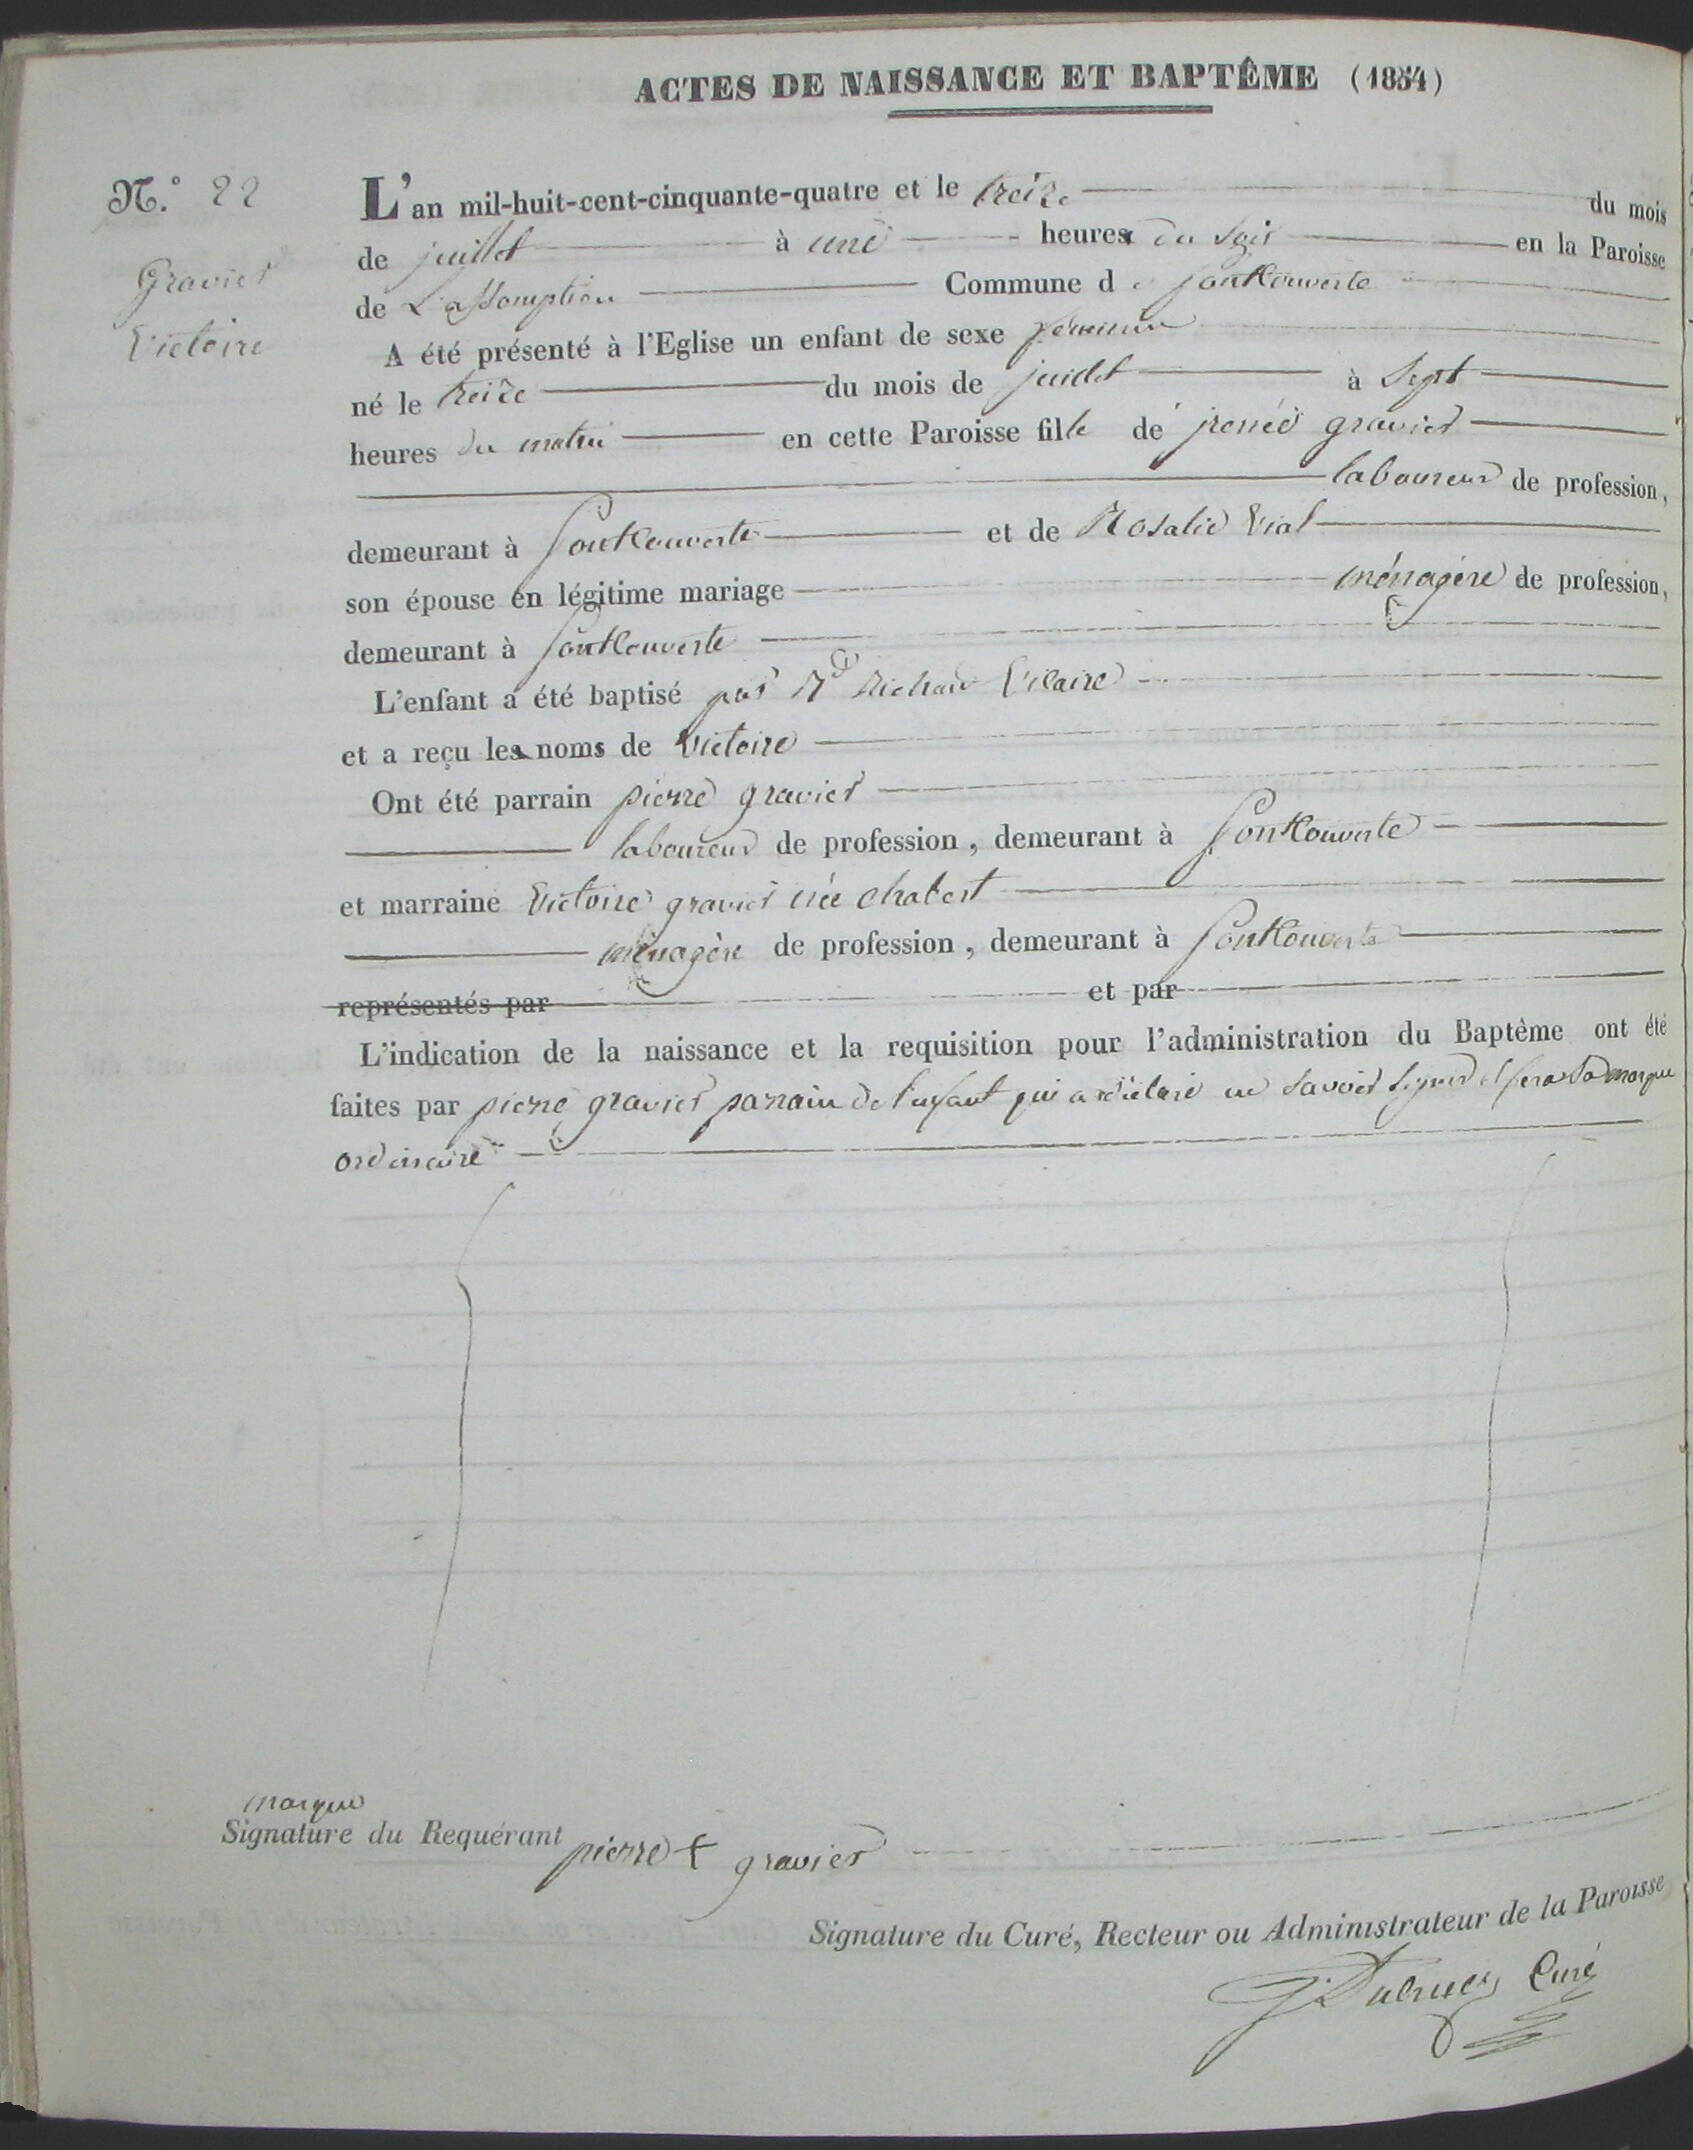 ACTES DE NAISSANCE ET BAPTÊME (1854)
N.° 22
Gravier
Victoire
L'an mil-huit-cent-cinquante-quatre et le treize du mois
de juillet à une heures du soir en la Paroisse
de L'assomption Commune de fontcouverte
A été présenté à l'Eglise un enfant de sexe féminin
né le treize du mois de juillet à Sept
heures du matin en cette Paroisse fille de gravier
laboureur de profession,
demeurant à fontcouverte et de Rosalie Vial
son épouse en légitime mariage ménagère de profession,
demeurant à fontcouverte
L'enfant a été baptisé par Vicaire
et a reçu les noms de Victoire
Ont été parrain pierre gravier
laboureur de profession, demeurant à fontcouverte
et marraine Victoire gravier née chabert
ménagère de profession, demeurant à fontcouverte
représentés par et par
L'indication de la naissance et la requisition pour l'administration du Baptème ont été
faites par pierre gravier parrain de l'enfant qui a déclaré ne savoir signer et fera sa marque
ordinaire
marque
Signature du Requérant pierre + gravier
Signature du Curé, Recteur ou Administrateur de la Paroisse
Curé